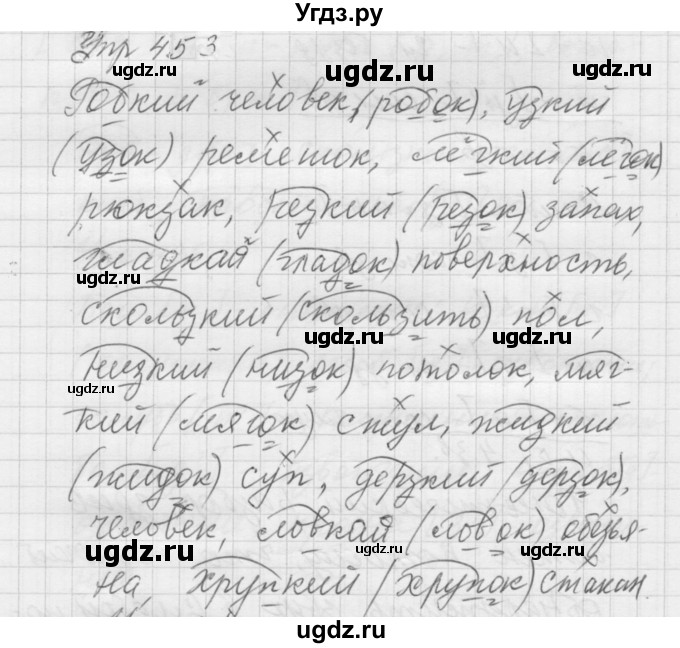 Угдз.ру
Упр 453
ugdz.ru
ugdz.ru
Робкий человек, (робок), узкий
ugdz.ru
(узок) ремешок, лёгкий (лёгок)
рюкзак, резкий (резок) запах,
гладкая (гладок) поверхность,
ugdz.ru
ugdz.ru
скользкий (скользить) пол,
ugdz.ru
низкий (низок) потолок, мяг-
ugdz.ru
кий (мягок) стул, жидкий
(жидок) суп, дерзкий (дерзок),
ugdz.ru
человек, ловкая (ловок) обезья-
ugdz.ru
ugdz.ru
на, хрупкий (хрупок) стакан.
ugdz.ru